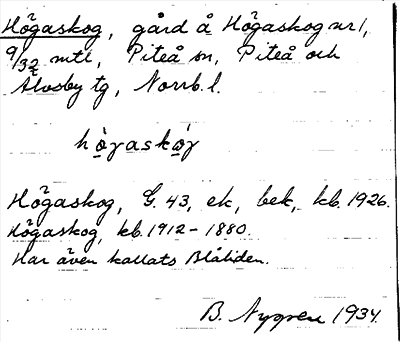 Högaskog, gård å Högaskog nr 1,
9/32 mtl, Piteå sn, Piteå och
Älvsby tg, Norrb. l.
hògaskóg
Högaskog, G. 43, ek, bek, kb. 1926.
Högaskog, kb. 1912-1880.
Har även kallats Blåliden.
B. Nygren 1934.